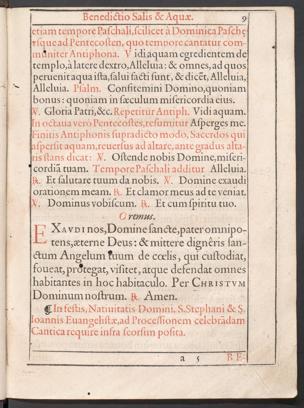 Benedictio Salis & Aquæ. 9
etiam tempore Paschali, scilicet à Dominica Pasche
vsque ad Pentecosten, quo tempore cantatur com
muniter Antiphona. Vidi aquam egredientem de
templo, à latere dextro, Alleluia: & omnes, ad quos
peruenit aqua ista, salui facti sunt, & dicẽt, Alleluia,
Alleluia. Psalm. Confitemini Domino, quoniam
bonus: quoniam in sæculum misericordia eius.
℣. Gloria Patri, &c. Repetitur Antiph. Vidi aquam.
In octaua verò Pentecostes, resumitur Asperges me.
Finitis Antiphonis supradicto modo, Sacerdos qui
aspersit aquam, reuersus ad altare, ante gradus alta-
ris stans dicat: ℣. Ostende nobis Domine, miseri-
cordiã tuam. Tempore Paschali additur Alleluia.
℟. Et salutare tuum da nobis. ℣. Domine exaudi
orationem meam. ℟. Et clamor meus ad te veniat.
℣. Dominus vobiscum. ℟. Et cum spiritu tuo.
Oremus.
EXAVDI nos, Domine sancte, pater omnipo-
tens, æterne Deus: & mittere digneris san-
ctum Angelum tuum de cœlis, qui custodiat,
foueat, protegat, visitet, atque defendat omnes
habitantes in hoc habitaculo. Per CHRISTVM
Dominum nostrum. ℟. Amen.
¶ In festis, Natiuitatis Domini, S. Stephani & S.
Ioannis Euangelistæ, ad Processionem celebrãdam
Cantica require infra seorsim posita.
a 5 BE-